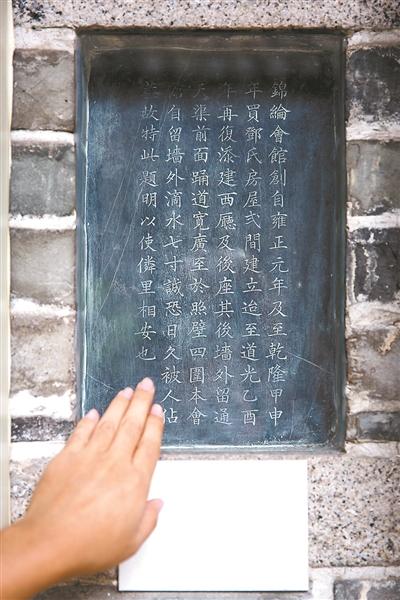 錦綸會館創自雍正元年及至乾隆甲申
年買鄧氏房屋弍間建立迨至道光乙酉
年再復添建西廳及後座其後墻外留通
天渠前面踊道寬廣至於照壁四圍本會
自留墻外滴水七寸誠恐日久被人佔
故特此題明以使隣里相安也